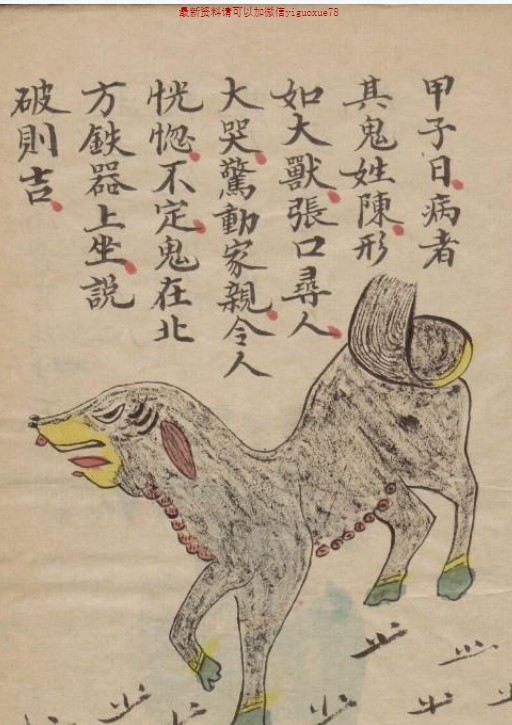 最新资料请可以加微信yiguoxue78
甲子日病者
其鬼姓陳形
如大獸張口尋人
大哭驚動家親令人
恍惚不定鬼在北
方鉄器上坐説
破則吉